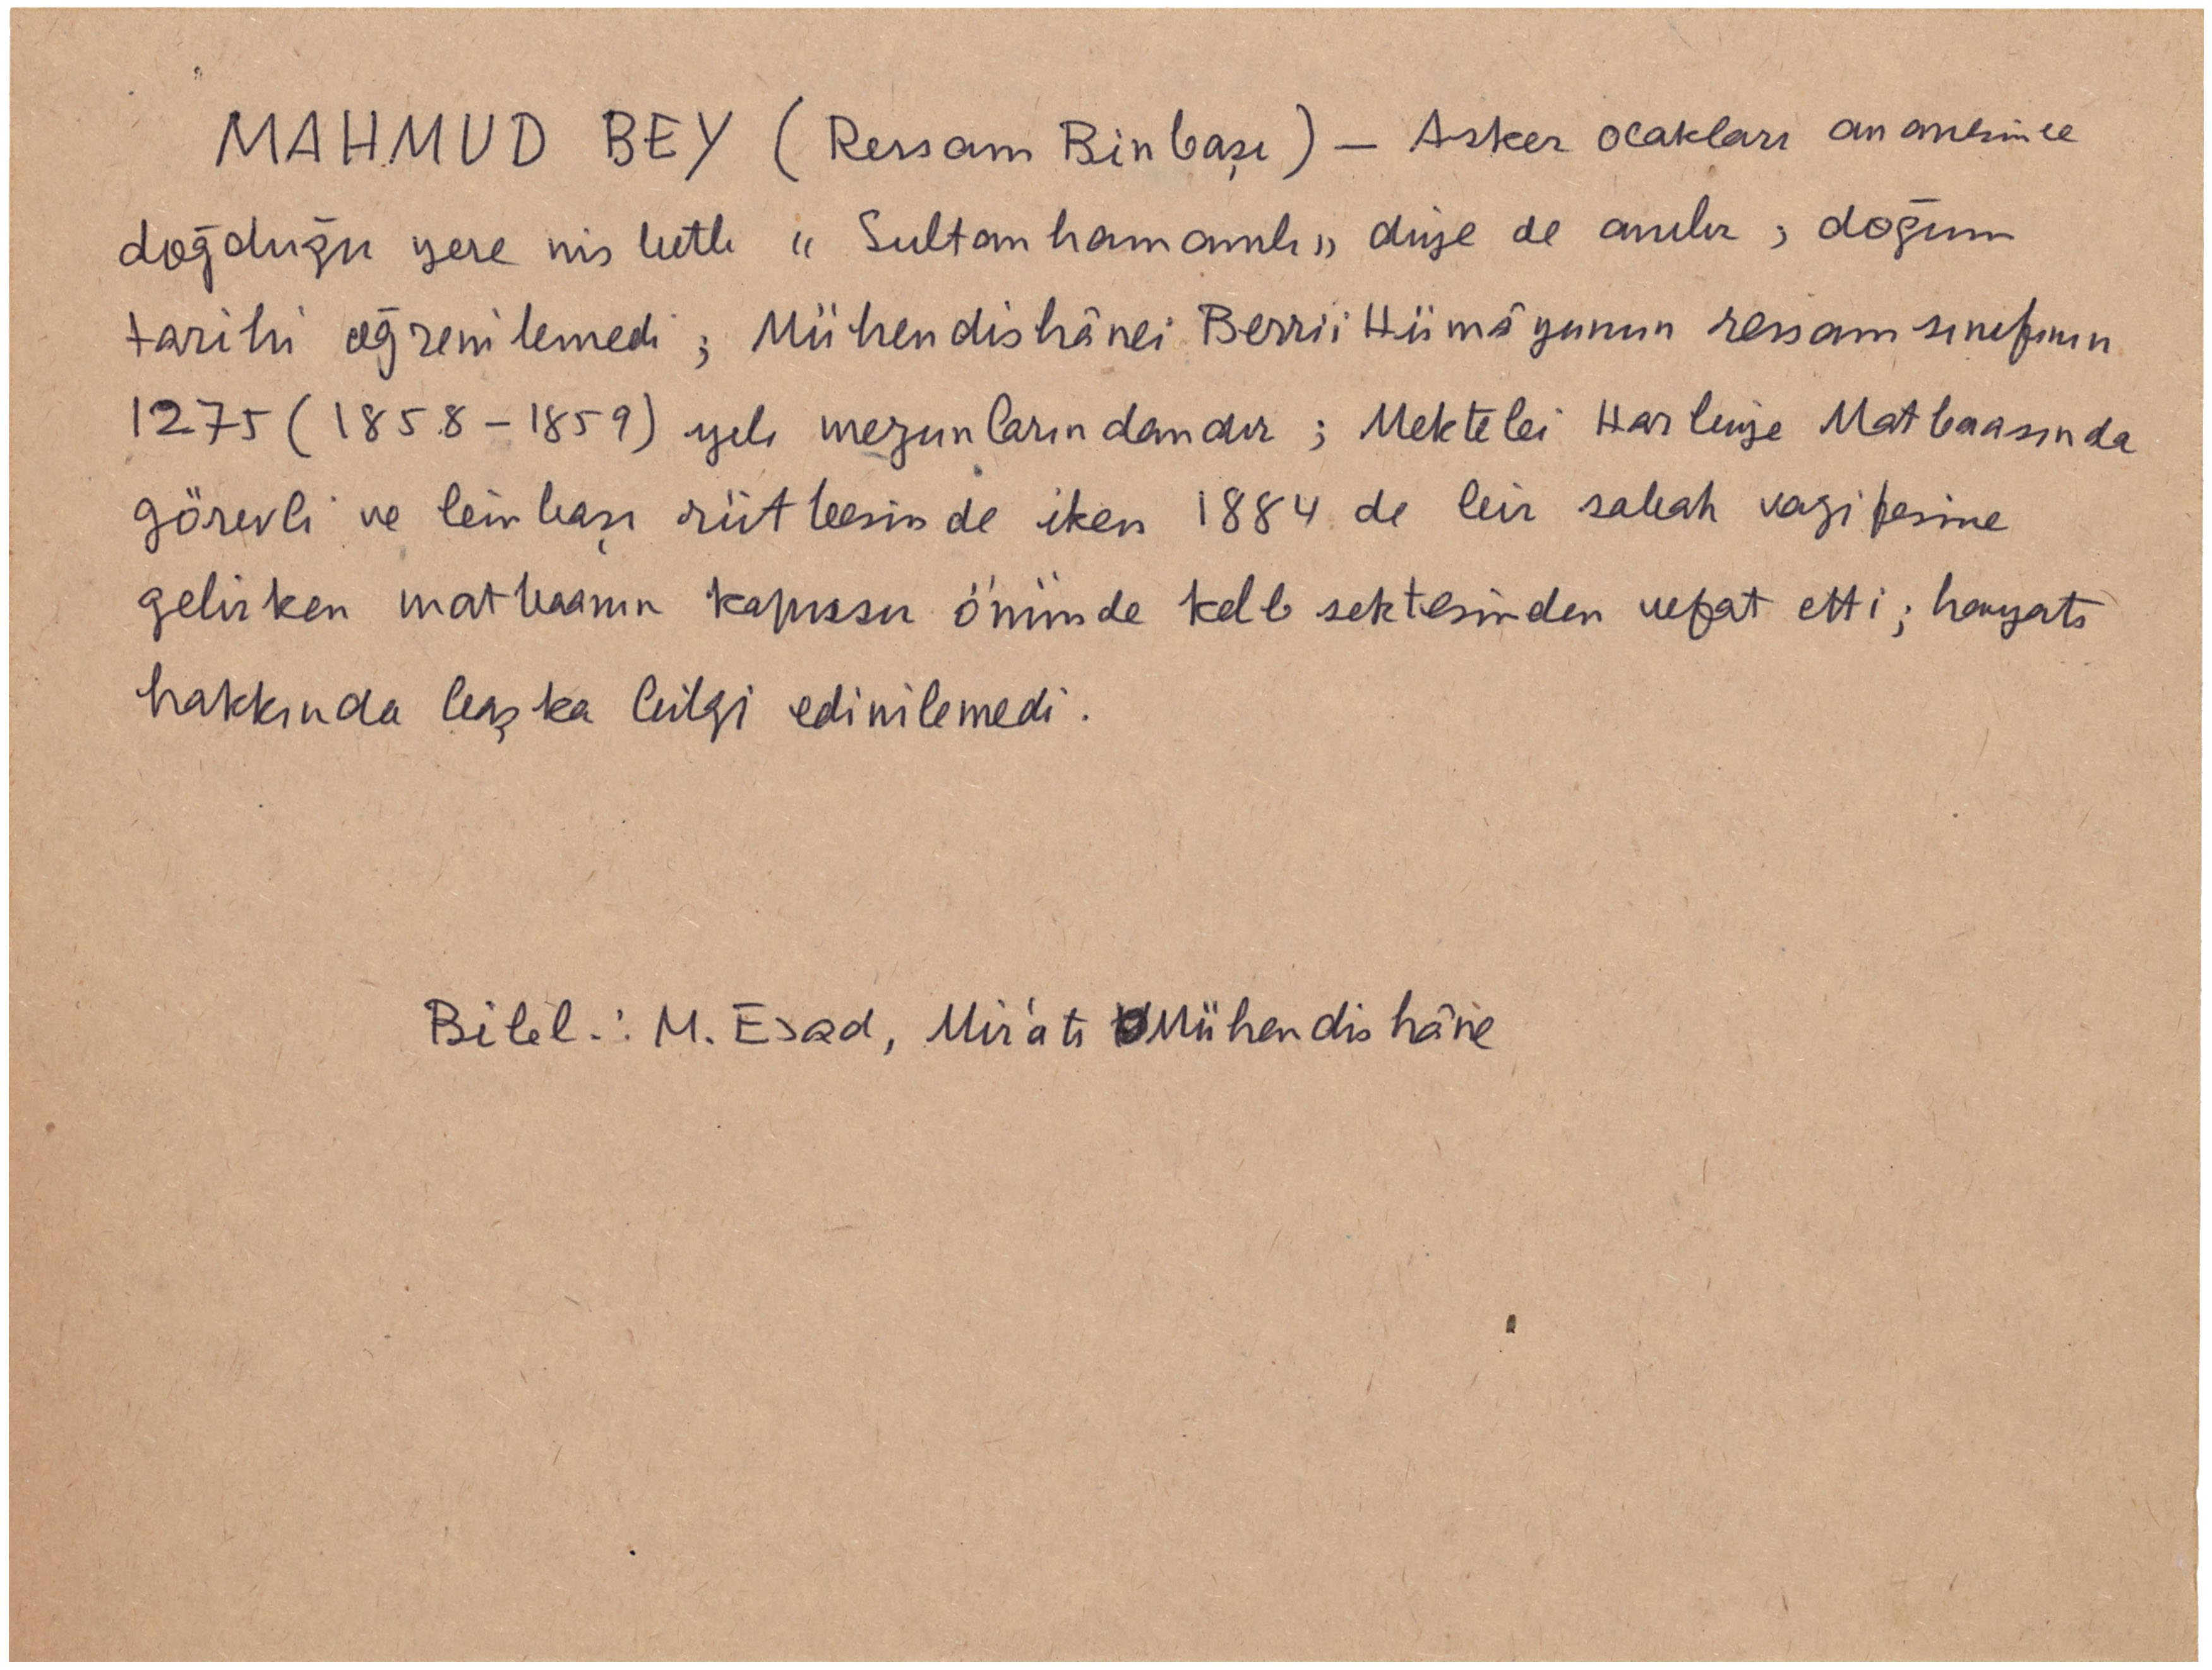 MAHMUD BEY (Ressam Binbaşı) — Asker ocakları ananesince
doğduğu yere nisbetle "Sultanhamamlı" diye de anılır ; doğum
tarihi öğrenilemedi ; Mühendishânei Berrii Hümâyunun ressam sınıfının
1275 (1858-1859) yılı mezunlarındandır ; Mektebi Harbiye Matbaasında
görevli ve binbaşı rütbesinde iken 1884 de bir sabah vazifesine
gelirken matbaanın kapussu önünde kalb sektesinden vefat etti ; hayatı
hakkında başka bilgi edinilemedi .
Bibl. : M. Esad, Mir'atı Mühendishâne